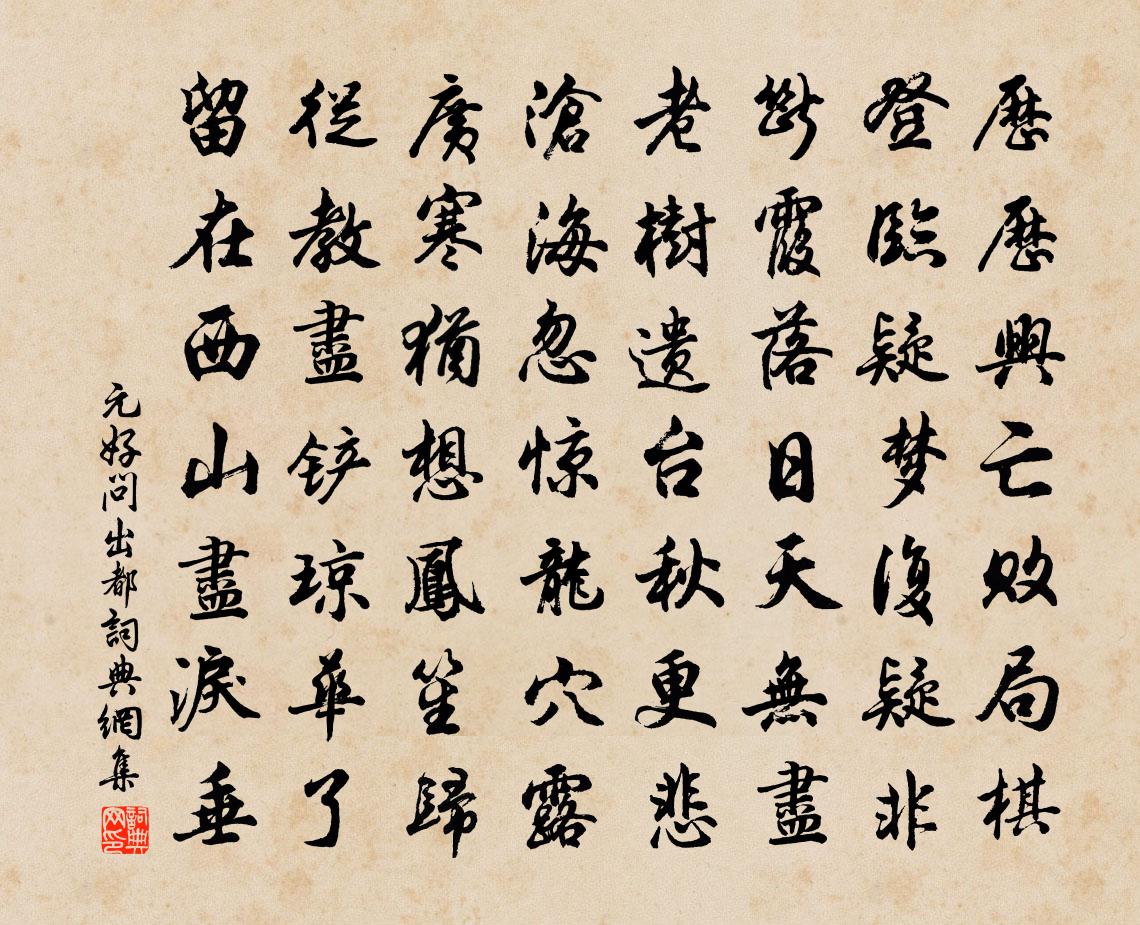 歷歷興亡敗局棋
登臨疑夢復疑非
斷霞落日天無盡
老樹遺台秋更悲
滄海忽惊龍穴露
廣寒猶想鳳笙歸
從教盡铲琼華了
留在西山盡淚垂
元好問出都詞典網集
詞典網印